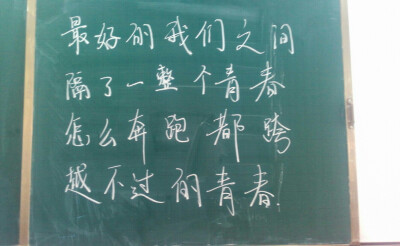 最好的我们之间
隔了一整个青春
怎么奔跑都跨
越不过的青春.